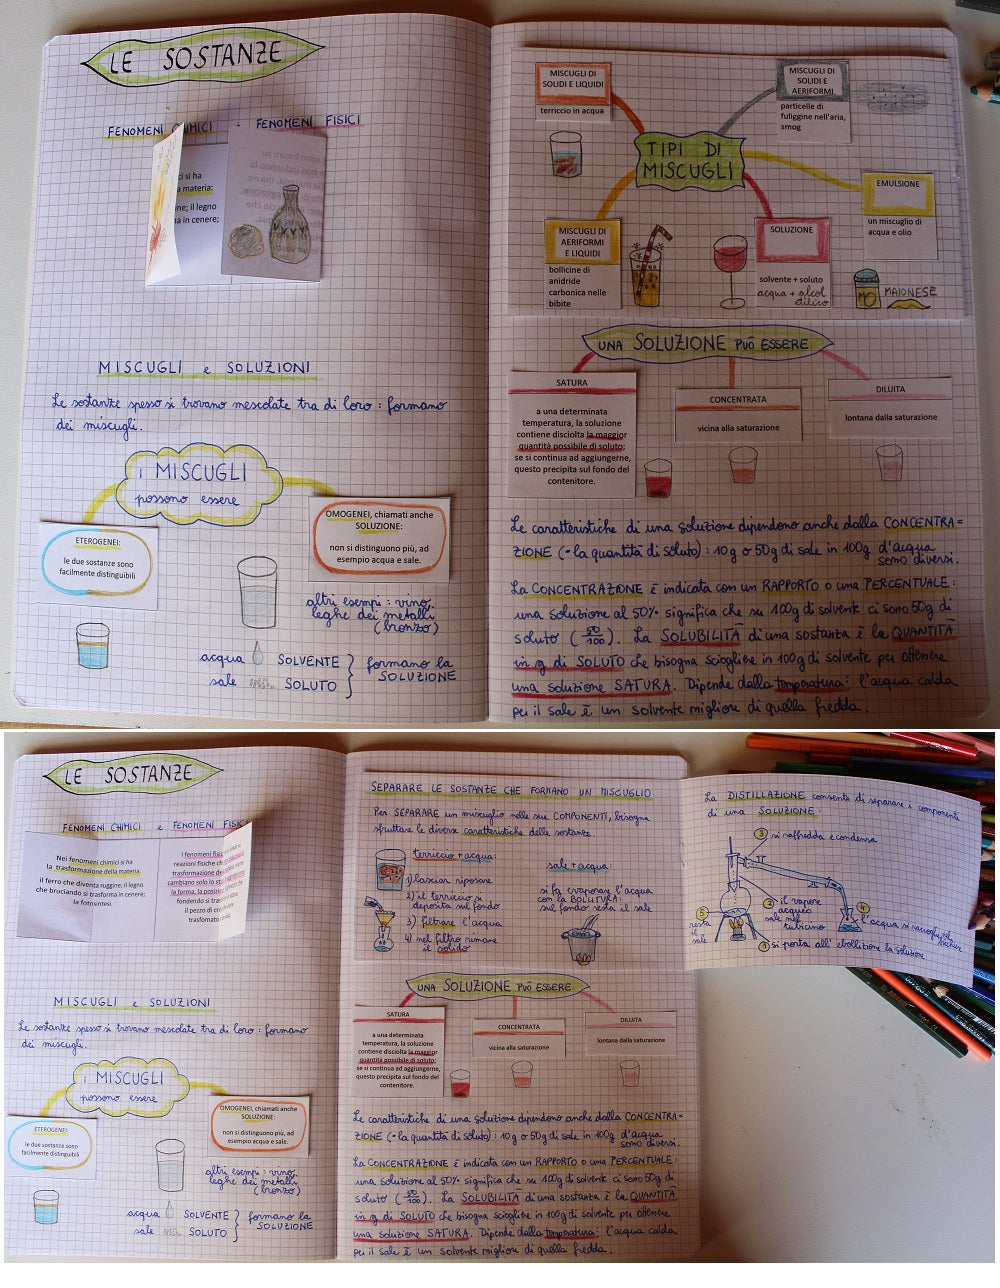 LE SOSTANZE
FENOMENI CHIMICI - FENOMENI FISICI
ci si ha
a materia:
ine; il legno
a in cenere;
MISCUGLI e SOLUZIONI
Le sostanze spesso si trovano mescolate tra di loro: formano
dei miscugli.
I MISCUGLI
possono essere
ETEROGENEI:
le due sostanze sono
facilmente distinguibili
OMOGENEI, chiamati anche
SOLUZIONE:
non si distinguono più, ad
esempio acqua e sale.
altri esempi: vino,
leghe dei metalli
(bronzo)
acqua SOLVENTE
sale SOLUTO
formano la
SOLUZIONE
MISCUGLI DI
SOLIDI E LIQUIDI
terriccio in acqua
MISCUGLI DI
SOLIDI E
AERIFORMI
particelle di
fuliggine nell'aria,
smog
TIPI DI
MISCUGLI
EMULSIONE
un miscuglio di
acqua e olio
MISCUGLI DI
AERIFORMI
E LIQUIDI
bollicine di
anidride
carbonica nelle
bibite
SOLUZIONE
solvente + soluto
acqua + alcol
etilico
MO
MAIONESE
UNA SOLUZIONE PUÒ ESSERE
SATURA
a una determinata
temperatura, la soluzione
contiene disciolta la maggior
quantità possibile di soluto;
se si continua ad aggiungerne,
questo precipita sul fondo del
contenitore.
CONCENTRATA
vicina alla saturazione
DILUITA
lontana dalla saturazione
Le caratteristiche di una soluzione dipendono anche dalla CONCENTRA=
ZIONE (-la quantità di soluto): 10 g o 50 g di sale in 100 g d'acqua
sono diversi.
La CONCENTRAZIONE È indicata con un RAPPORTO o una PERCENTUALE:
una soluzione al 50% significa che su 100 g di solvente ci sono 50 g di
soluto (50/100). La SOLUBILITÀ di una sostanza è la QUANTITÀ
in g di SOLUTO che bisogna sciogliere in 100 g di solvente per ottenere
una soluzione SATURA. Dipende dalla temperatura: l'acqua calda
per il sale è un solvente migliore di quella fredda.
LE SOSTANZE
FENOMENI CHIMICI e FENOMENI FISICI
Nei fenomeni chimici si ha
la trasformazione della materia:
il ferro che diventa ruggine; il legno
che bruciando si trasforma in cenere;
la fotosintesi.
I fenomeni fisici
reazioni fisiche
trasformazione
cambiano solo lo
la forma, la posizione
fondendo si
il pezzo di
trasformato
MISCUGLI e SOLUZIONI
Le sostanze spesso si trovano mescolate tra di loro: formano
dei miscugli.
I MISCUGLI
possono essere
ETEROGENEI:
le due sostanze sono
facilmente distinguibili
OMOGENEI, chiamati anche
SOLUZIONE:
non si distinguono più, ad
esempio acqua e sale.
altri esempi: vino,
leghe dei metalli
(bronzo)
acqua SOLVENTE
sale SOLUTO
formano la
SOLUZIONE
SEPARARE LE SOSTANZE CHE FORMANO UN MISCUGLIO
Per SEPARARE un miscuglio nelle sue COMPONENTI, bisogna
sfruttare le diverse caratteristiche delle sostanze.
terriccio + acqua:
1) lasciar riposare
2) il terriccio si
deposita sul fondo
3) filtrare l'acqua
4) nel filtro rimane
il solido
sale + acqua:
si fa evaporare l'acqua
con la BOLLITURA:
sul fondo resta il sale
La DISTILLAZIONE consente di separare i componenti
di una SOLUZIONE.
3 si raffredda e condensa
2 il vapore
acqueo
sale nel
tubicino
4 l'acqua si raccoglie nel
5 resta
il
sale
1 si porta all'ebollizione la soluzione
UNA SOLUZIONE PUÒ ESSERE
SATURA
a una determinata
temperatura, la soluzione
contiene disciolta la maggior
quantità possibile di soluto;
se si continua ad aggiungerne,
questo precipita sul fondo del
contenitore.
CONCENTRATA
vicina alla saturazione
DILUITA
lontana dalla saturazione
Le caratteristiche di una soluzione dipendono anche dalla CONCENTRA=
ZIONE (-la quantità di soluto): 10 g o 50 g di sale in 100 g d'acqua
sono diversi.
La CONCENTRAZIONE È indicata con un RAPPORTO o una PERCENTUALE:
una soluzione al 50% significa che su 100 g di solvente ci sono 50 g di
soluto (50/100). La SOLUBILITÀ di una sostanza è la QUANTITÀ
in g di SOLUTO che bisogna sciogliere in 100 g di solvente per ottenere
una soluzione SATURA. Dipende dalla temperatura: l'acqua calda
per il sale è un solvente migliore di quella fredda.